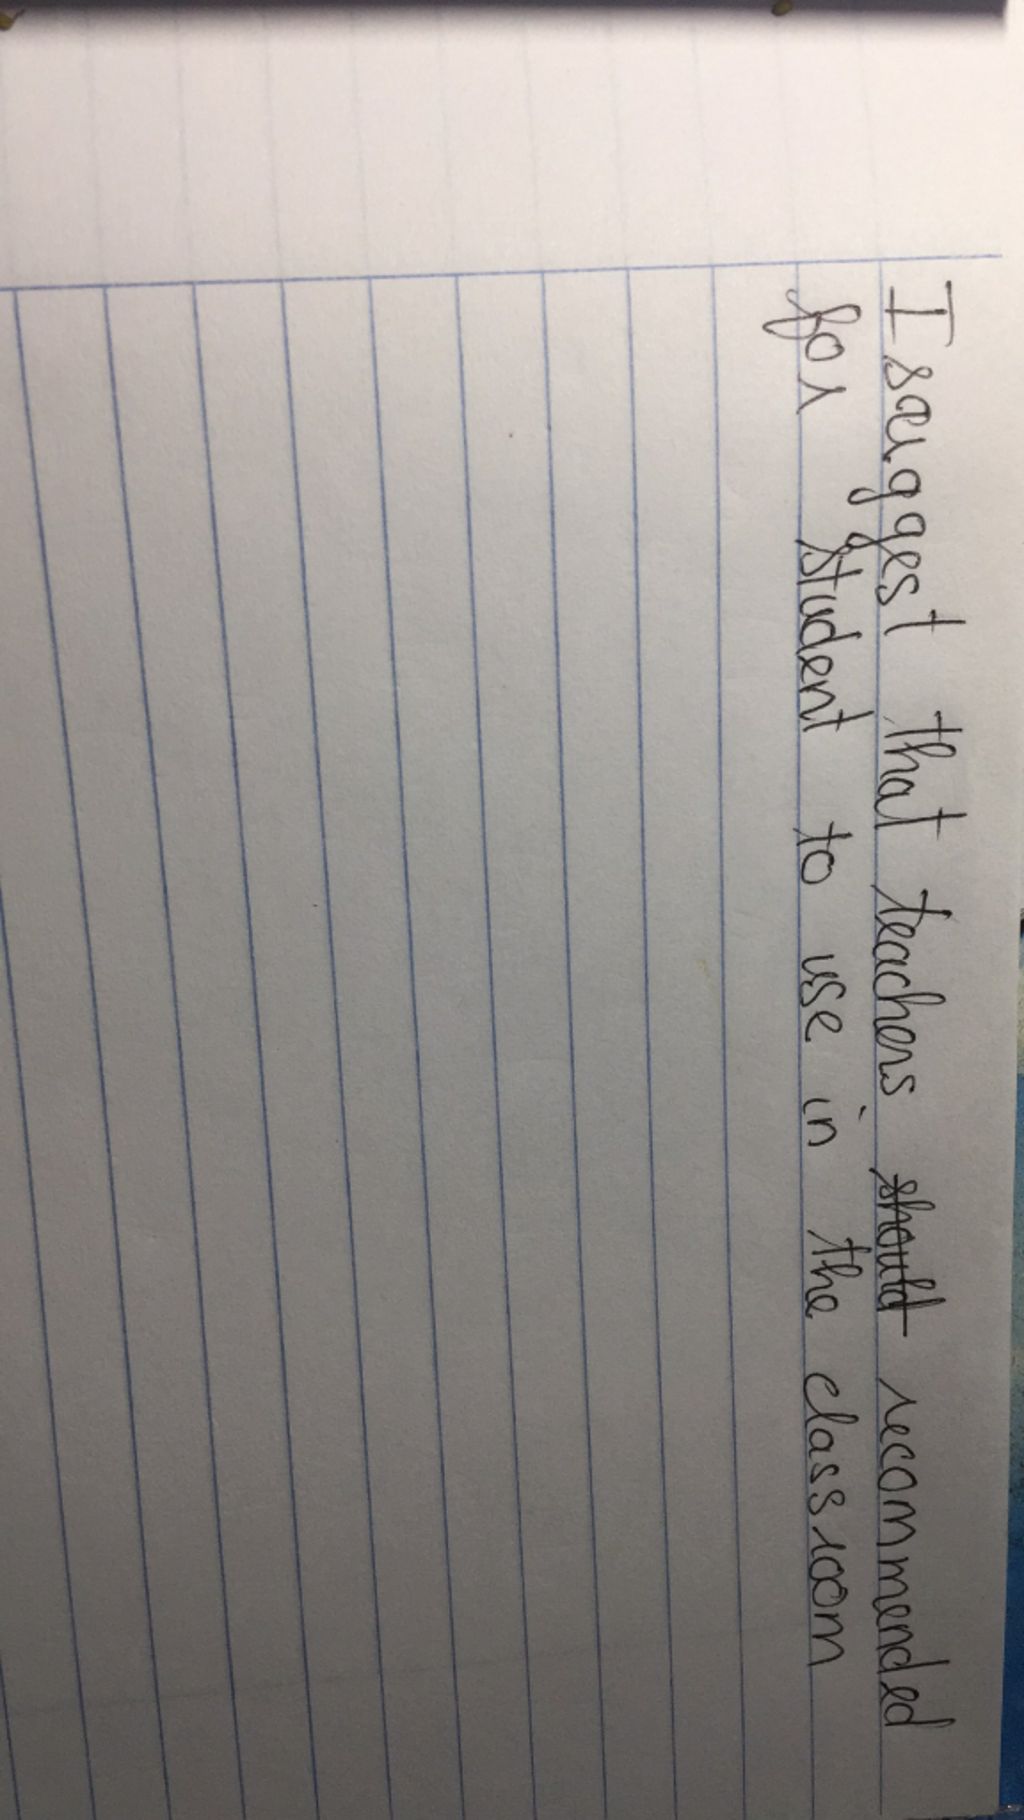 I suggest that teachers should recommended
for student to use in the classroom